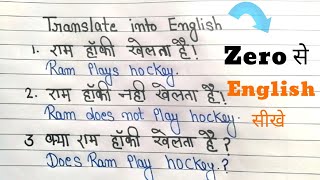 Translate into English
1. राम हॉकी खेलता है!
Ram Plays hockey.
2. राम हॉकी नही खेलता है!
Ram does not Play hockey.
3 क्या राम हॉकी खेलता है?
Does Ram Play hockey.?
Zero से
English
सीखे